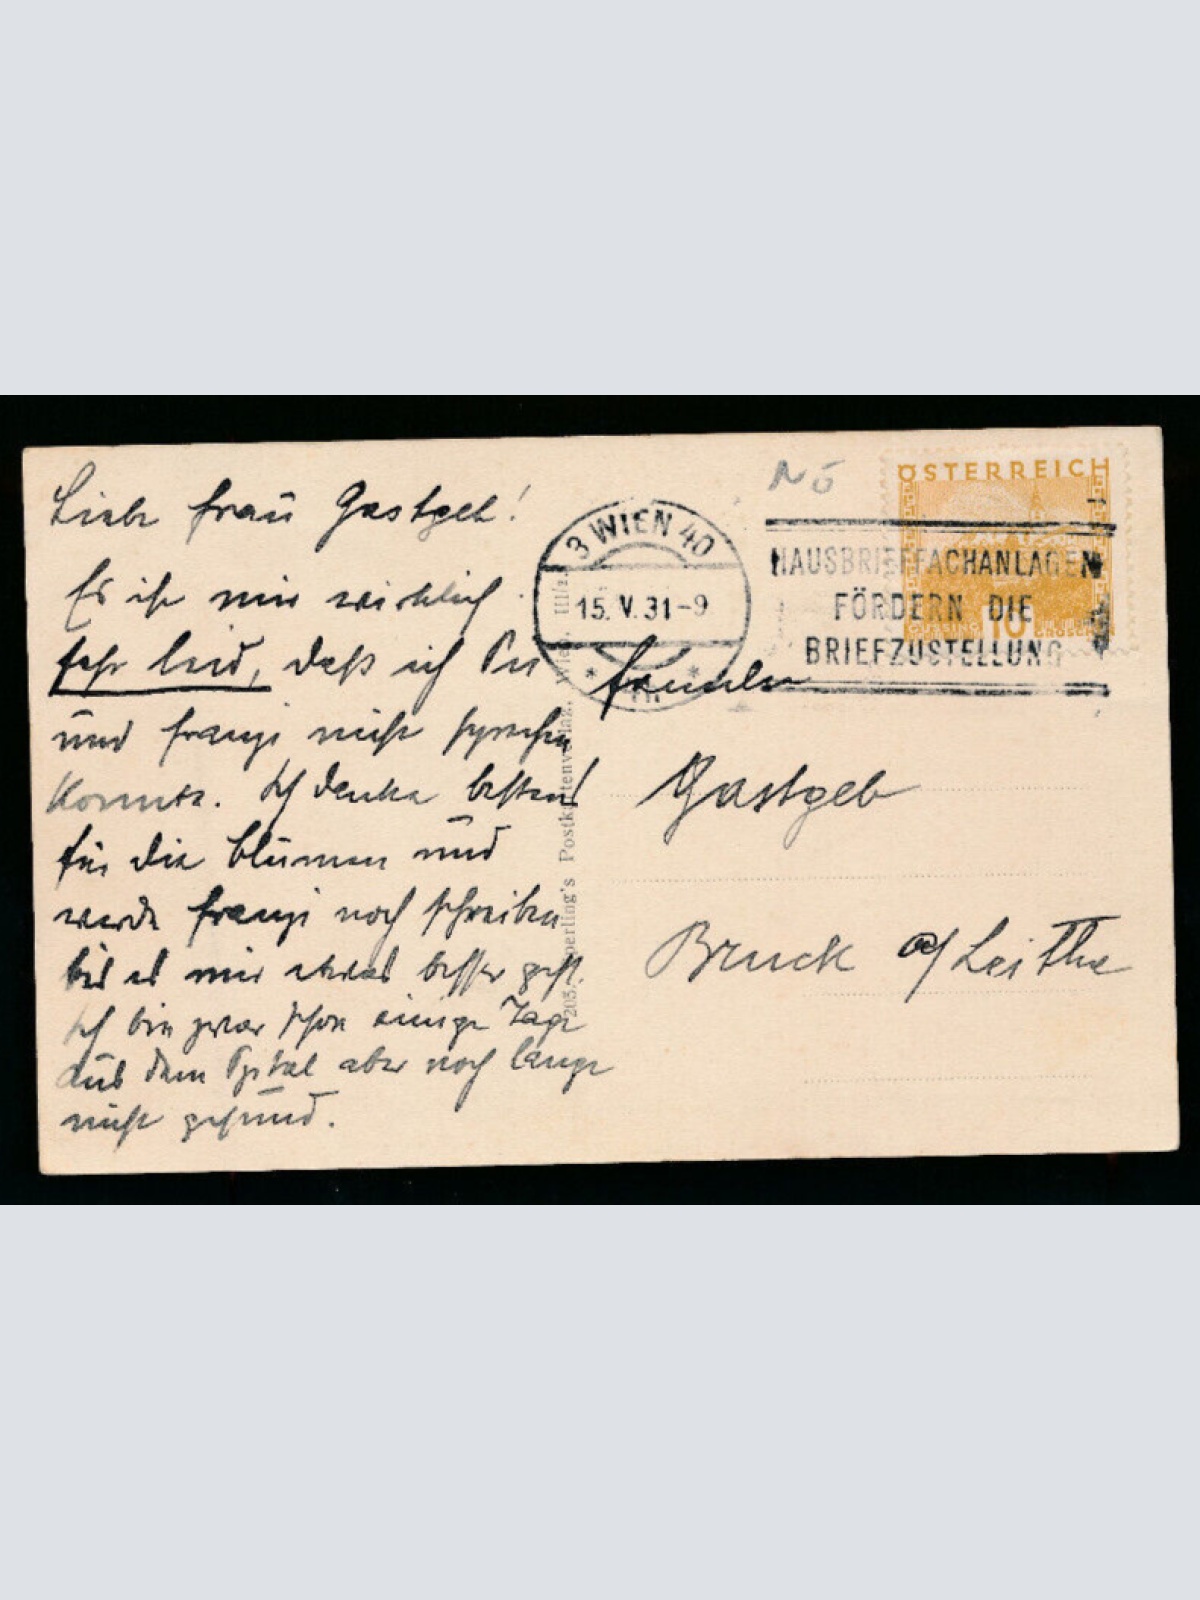 Liebe Frau Gastgeb!
Es ist mir wirklich
sehr leid, daß ich Sie
und Franzi nicht sprechen
konnte. Ich danke bestens
für die Blumen und
werde Franzi noch schreiben
bis es mir etwas besser geht.
Ich bin zwar schon einige Tage
aus dem Spital aber noch lange
nicht gesund.
NÖ
ÖSTERREICH
GÜSSING 10 GROSCHEN
3 WIEN 40
15. V. 31-9
HAUSBRIEFFACHANLAGEN
FÖRDERN DIE
BRIEFZUSTELLUNG
Familie
Gastgeb
Bruck a/Leitha
Postkartenverlag, Wien, III/2.